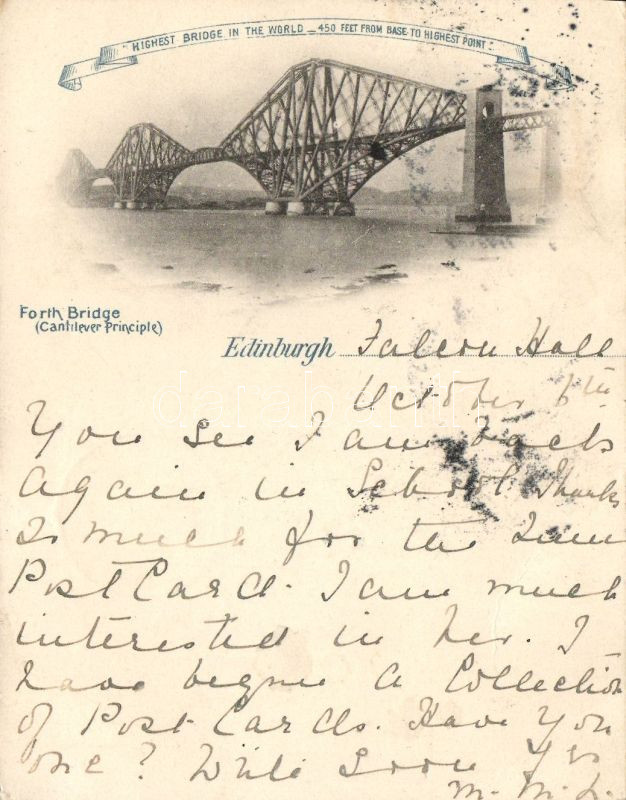 "HIGHEST BRIDGE IN THE WORLD — 450 FEET FROM BASE TO HIGHEST POINT."
Forth Bridge
(Cantilever Principle)
Edinburgh Falcon Hall
October 6th
You see I am back
again in School. Thanks
so much for the
Post Card. I am much
interested in her. I
have begun a Collection
of Post Cards. Have You
one? Write soon Yrs
M. M. L.